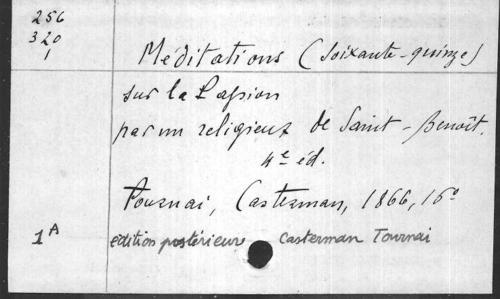 256
320
1
Méditations (soixante-quinze)
sur la Passion
par un religieux de Saint-Benoît.
4e éd.
Tournai, Casterman, 1866, 16°
1A
edition postérieure Casterman Tournai